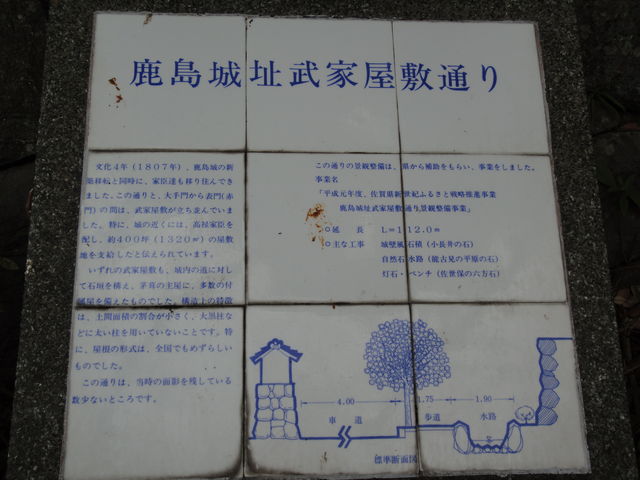 鹿島城址武家屋敷通り
文化4年(1807年)、鹿島城の新
築移転と同時に、家臣達も移り住んでき
ました。この通りと、大手門から表門(赤
門)の間は、武家屋敷が立ち並んでいま
した。特に、城の近くには、高禄家臣を
配し、約400坪(1320㎡)の屋敷
地を支給したと伝えられています。
いずれの武家屋敷も、城内の道に対し
て石垣を構え、茅葺の主屋に、多数の付
属屋を備えたものでした。構造上の特徴
は、土間面積の割合が小さく、大黒柱な
どに太い柱を用いていないことです。特
に、屋根の形式は、全国でもめずらしい
ものでした。
この通りは、当時の面影を残している
数少ないところです。
この通りの景観整備は、県から補助をもらい、事業をしました。
事業名
「平成元年度、佐賀県新世紀ふるさと戦略推進事業
鹿島城址武家屋敷通り景観整備事業」
○延 長 L=112.0m
○主な工事 城壁風石積(小長井の石)
自然石水路(能古見の平原の石)
灯石・ベンチ(佐世保の六方石)
4.00 1.75 1.90
車道 歩道 水路
標準断面図